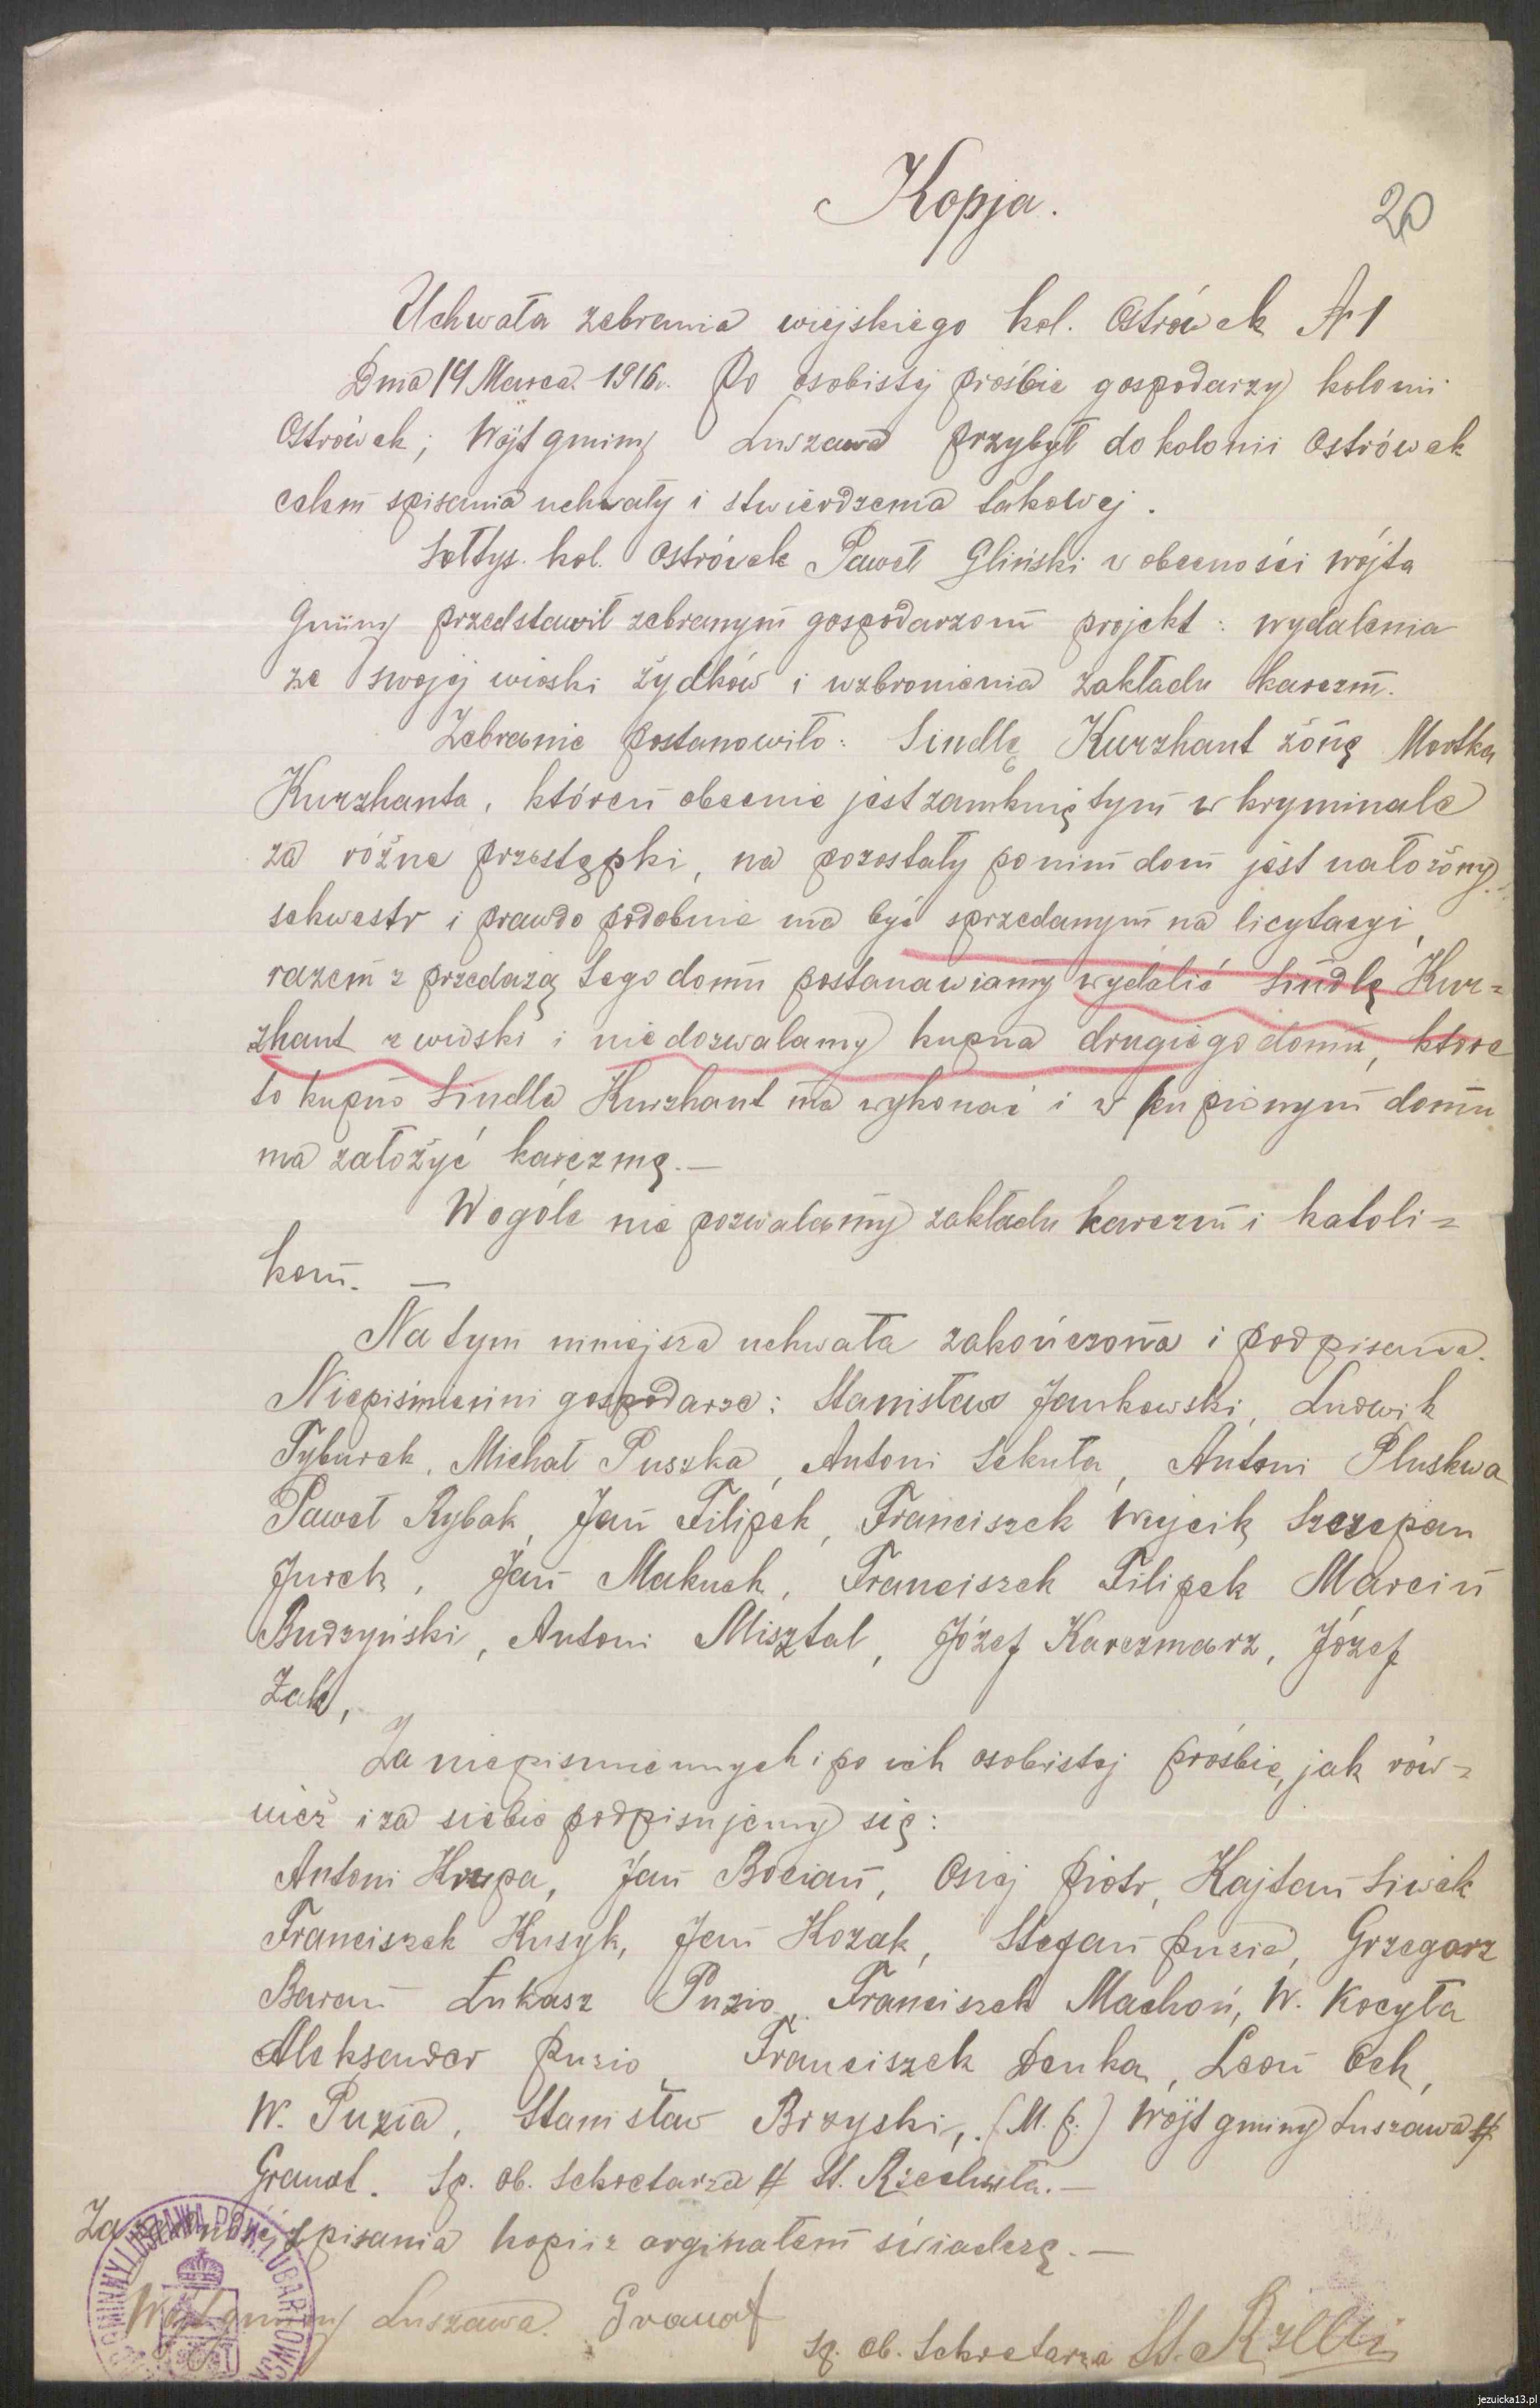 Kopja.
20
Uchwała zebrania wiejskiego kol. Ostrówek № 1
Dnia 14 Marca 1916 r. Po osobistej prośbie gospodarzy kolonii
Ostrówek; Wójt gminy Luszawa przybył do kolonii Ostrówek
celem spisania uchwały i stwierdzenia takowej.
Sołtys. kol. Ostrówek Paweł Gliński w obecności wójta
Gminy przedstawił zebranym gospodarzom projekt: wydalenia
ze swojej wioski żydków i wzbronienia zakładu karczm.
Zebranie postanowiło: Sindlę Kurzhant żonę Mortka
Kurzhanta, którem obecnie jest zamkniętym w kryminale
za różne przestępki, na pozostały po nim dom jest nałożony
sekwestr i prawdo podobnie ma być sprzedanym na licytacyi,
razem z przedażą tego domu postanawiamy wydalić Sindlę Kur=
zhant z wioski i niedozwalamy kupna drugiego domu, które
to kupno Sindla Kurzhant ma wykonać i w kupionym domu
ma założyć karczmę.—
Wogóle nie pozwalamy zakładu karczm i katoli=
kom. —
Na tym niniejsza uchwała zakończona i podpisana.
Niepiśmienni gospodarze: Stanisław Jankowski, Ludwik
Tyburek, Michał Puszka, Antoni Sekuła, Antoni Pluskwa
Paweł Rybak, Jan Filipek, Franciszek Wujcik, Szczepan
Jurek, Jan Makuch, Franciszek Filipek Marcin
Budzyński, Antoni Misztal, Józef Karczmarz, Józef
Żak,
Za niepismiennych i po ich osobistej prośbie, jak rów=
nież i za siebie podpisujemy się:
Antoni Krupa, Jan Bocian, Osiej Piotr, Kajtan Siwek
Franciszek Kusyk, Jan Kozak, Stefan Puzia, Grzegorz
Baran Łukasz Puzio, Franciszek Machoń, W. Kocyła
Aleksander Puzio Franciszek Denka, Leon Cek,
W. Puzia, Stanisław Brzyski, (M. p.) Wójt gminy Luszawa
Granat. Sp. ob. Sekretarza St.
Za spisania kopii z orginałem świadczę.—
Wójt gminy Luszawa. Granat
Sp. ob. Sekretarza St.
GMINY LUSZAWA POW. LUBARTOWS
jezuicka13.pl